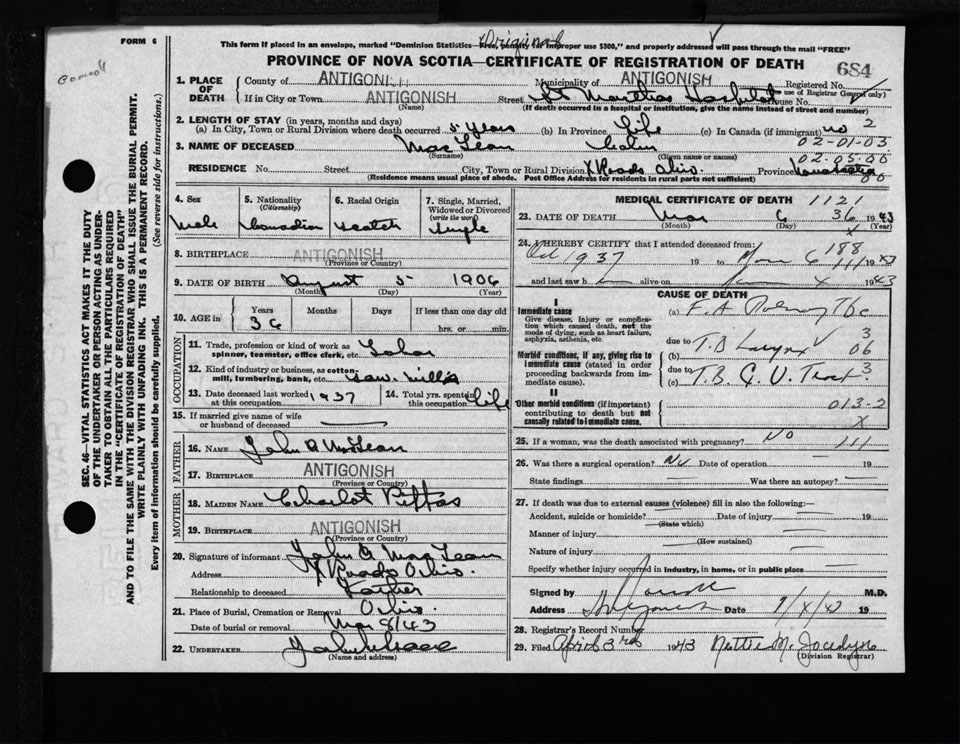 FORM 6
Original
This form if placed in an envelope, marked "Dominion Statistics—Free, penalty for improper use $300," and properly addressed will pass through the mail "FREE"
PROVINCE OF NOVA SCOTIA—CERTIFICATE OF REGISTRATION OF DEATH
684
1. PLACE OF DEATH County of ANTIGONISH Municipality of ANTIGONISH Registered No.
(use of Registrar General only)
If in City or Town ANTIGONISH Street St Marthas Hospital House No.
(If death occurred in a hospital or institution, give the name instead of street and number)
2. LENGTH OF STAY (in years, months and days)
(a) In City, Town or Rural Division where death occurred 5 years (b) In Province Life (c) In Canada (if immigrant) no 2
02-01-03
3. NAME OF DECEASED MacLean Colin
(Surname) (Given name or names)
02-05-00
RESIDENCE No. Street City, Town or Rural Division X Roads Ohio Province Nova Scotia
(Residence means usual place of abode. Post Office Address for residents in rural parts not sufficient)
4. Sex 5. Nationality (Citizenship) 6. Racial Origin 7. Single, Married, Widowed or Divorced (write the word)
Male Canadian Scotch Single
8. BIRTHPLACE ANTIGONISH
(Province or Country)
9. DATE OF BIRTH August 5 1906
(Month) (Day) (Year)
10. AGE in Years Months Days If less than one day old
36 hrs. or min.
OCCUPATION
11. Trade, profession or kind of work as spinner, teamster, office clerk, etc. Labor
12. Kind of industry or business, as cotton-mill, lumbering, bank, etc. Saw mills
13. Date deceased last worked at this occupation 1937 14. Total yrs. spent in this occupation life
15. If married give name of wife or husband of deceased
FATHER
16. NAME John A MacLean
17. BIRTHPLACE ANTIGONISH
(Province or Country)
MOTHER
18. MAIDEN NAME Charlot
19. BIRTHPLACE ANTIGONISH
(Province or Country)
20. Signature of informant John A MacLean
Address X Roads Ohio
Relationship to deceased Father
21. Place of Burial, Cremation or Removal Ohio
Date of burial or removal Mar 8/43
22. UNDERTAKER
(Name and address)
MEDICAL CERTIFICATE OF DEATH 1121
23. DATE OF DEATH Mar 6 36 1943
(Month) (Day) (Year)
24. I HEREBY CERTIFY that I attended deceased from:
188
Oct 1937 19 to Mar 6 111 1943
and last saw h alive on 1943
CAUSE OF DEATH
I
Immediate cause
Give disease, injury or complication which caused death, not the mode of dying, such as heart failure, asphyxia, asthenia, etc
(a) F.A. Pulmonary Tbc
due to
(b) T.B Larynx 3
06
Morbid conditions, if any, giving rise to immediate cause (stated in order proceeding backwards from immediate cause).
due to
(c) T.B. G. U. Tract. 3
II
Other morbid conditions (if important) contributing to death but not causally related to immediate cause.
013-2
X
25. If a woman, was the death associated with pregnancy? No 111
26. Was there a surgical operation? No Date of operation
State findings Was there an autopsy?
27. If death was due to external causes (violence) fill in also the following:
Accident, suicide or homicide? Date of injury
(State which)
Manner of injury
(How sustained)
Nature of injury
Specify whether injury occurred in industry, in home, or in public place
Signed by M.D.
Address Antigonish Date 19
28. Registrar's Record Number
29. Filed April 3rd 1943
(Division Registrar)
SEC. 46—VITAL STATISTICS ACT MAKES IT THE DUTY OF THE UNDERTAKER OR PERSON ACTING AS UNDERTAKER TO OBTAIN ALL THE PARTICULARS REQUIRED IN THE "CERTIFICATE OF REGISTRATION OF DEATH" AND TO FILE THE SAME WITH THE DIVISION REGISTRAR WHO SHALL ISSUE THE BURIAL PERMIT.
WRITE PLAINLY WITH UNFADING INK. THIS IS A PERMANENT RECORD.
Every item of information should be carefully supplied. (See reverse side for instructions.)